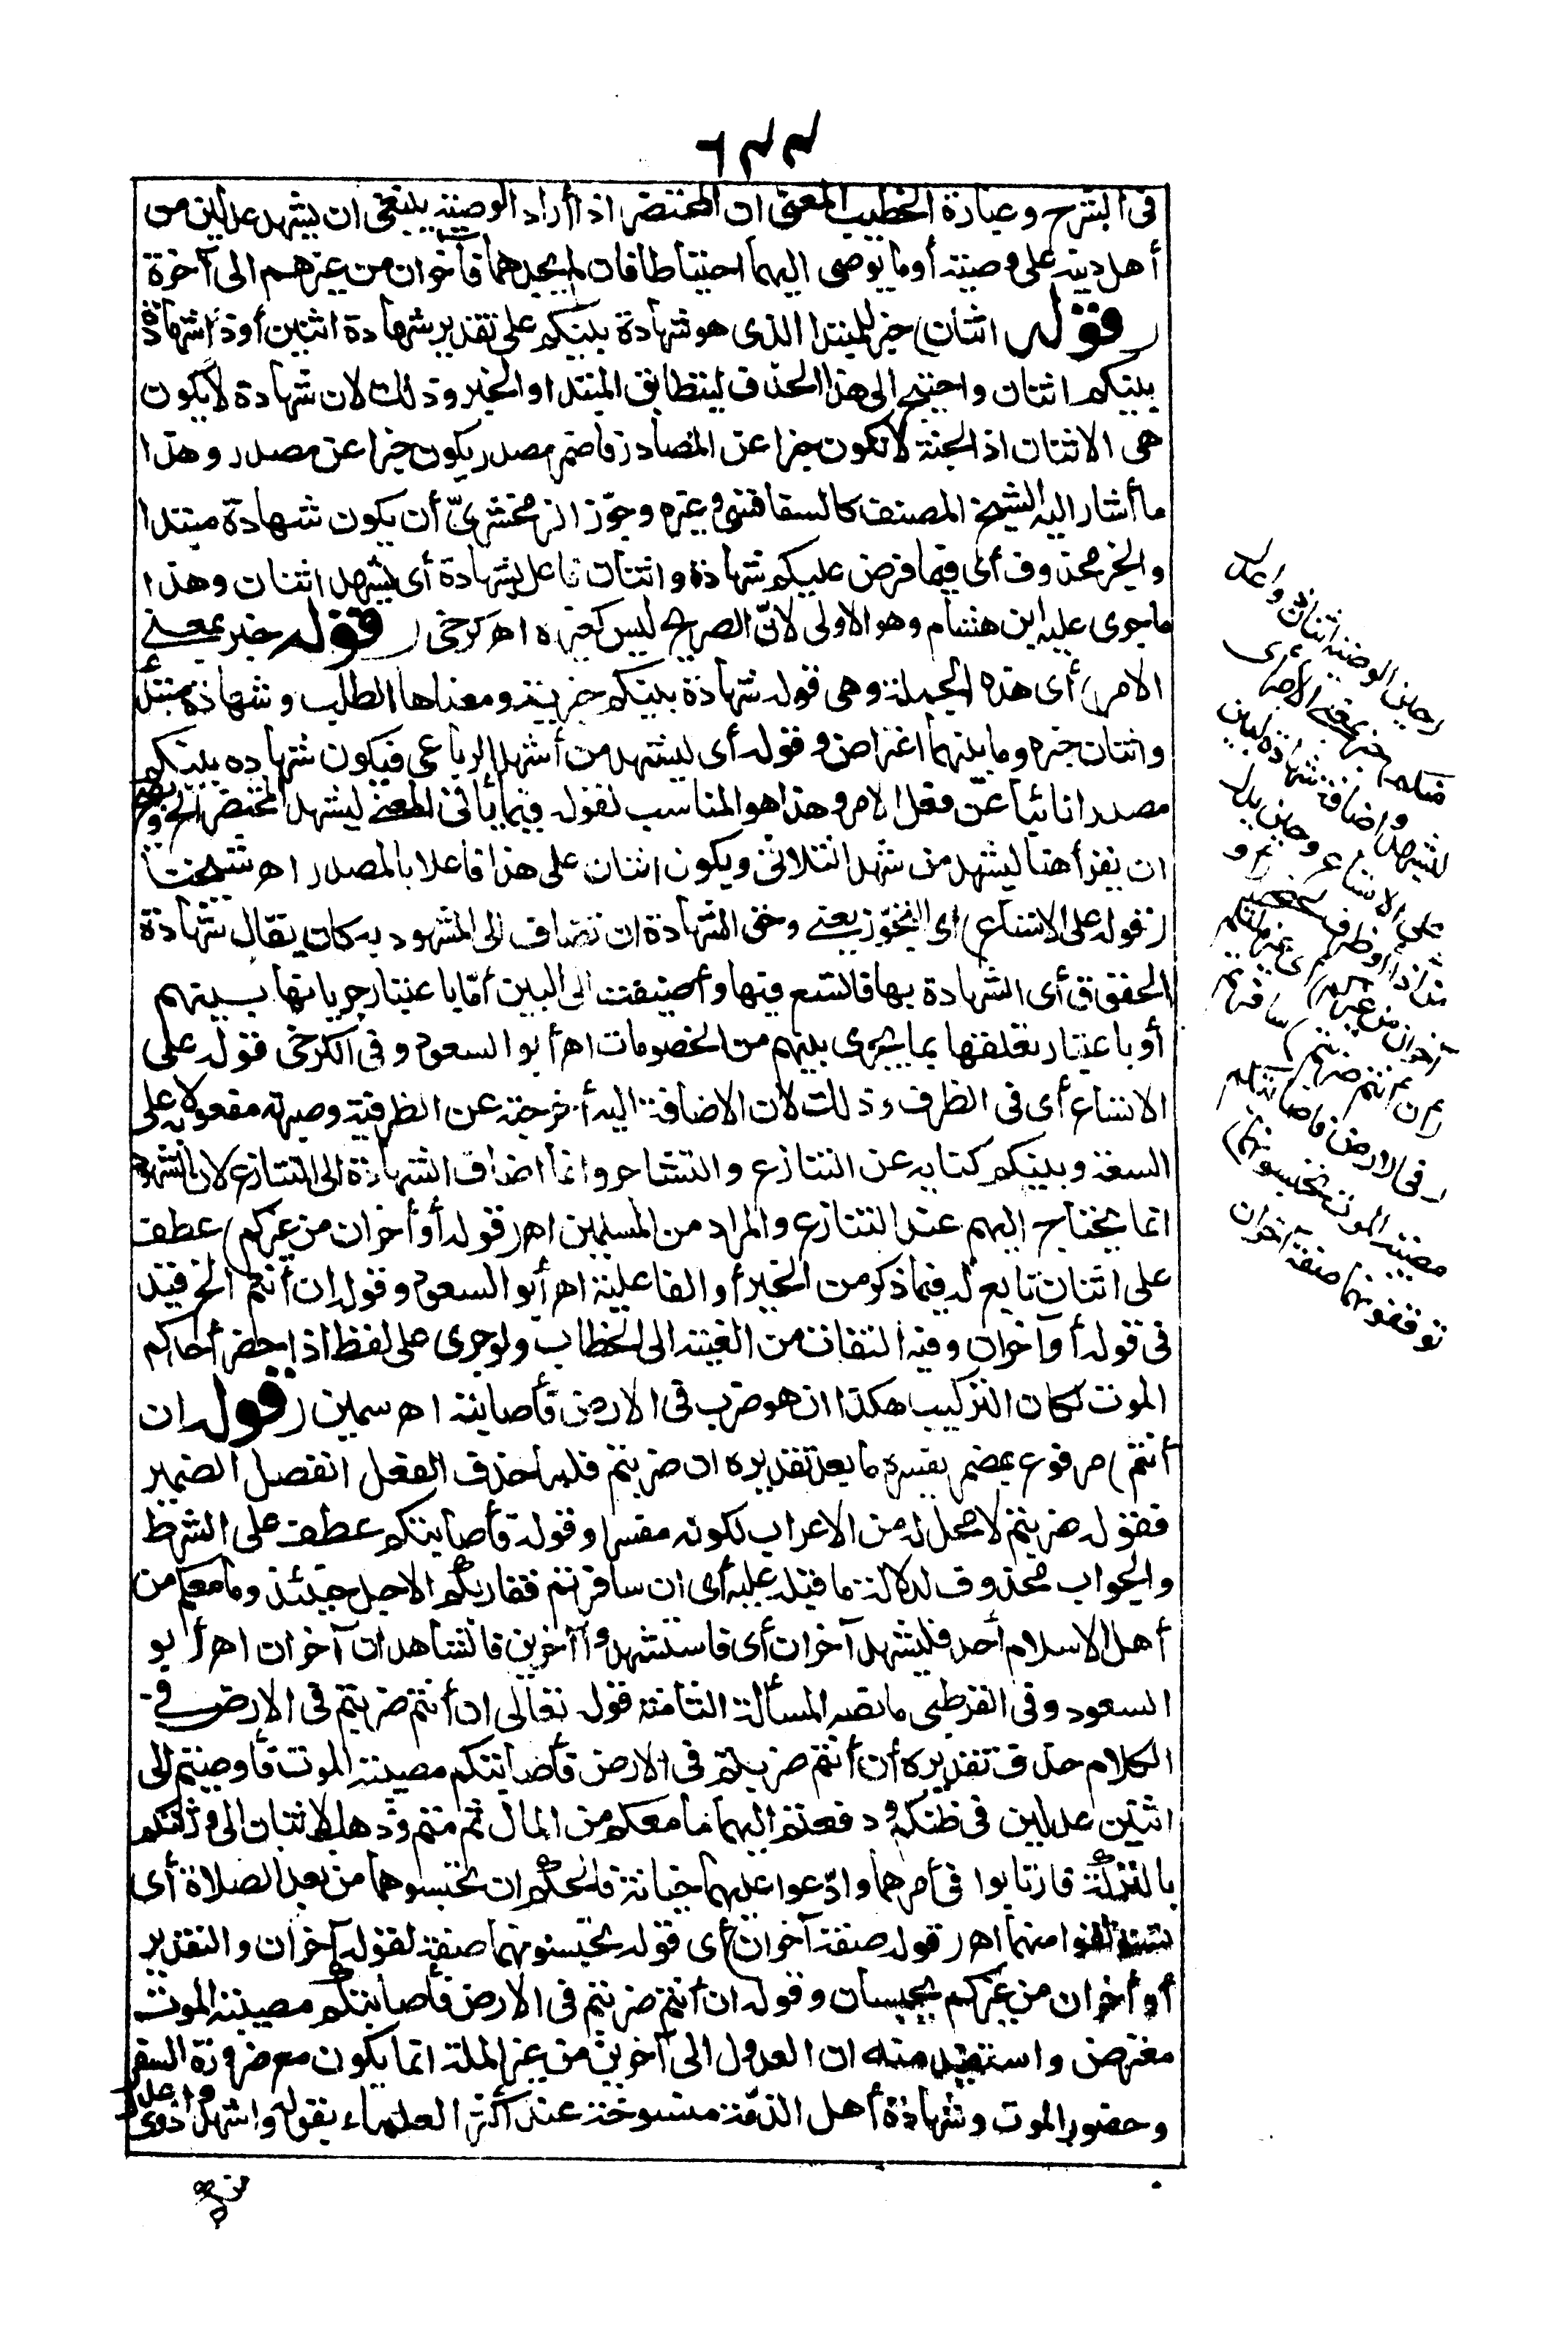 في الشرح وعبارة الخطيب المعنى ان المحتضر اذا أراد الوصية ينبغي ان يشهد عدلين من
أهل دينه على وصيته أو ما يوصى اليهما احتياطا فان لم يجدهما فآخران من غيرهم الى آخرة
(قوله اثنان) خبر المبتدا الذى هو شهادة بينكم على تقدير شهادة اثنين أو ذا شهادة
بينكم اثنان واحتيج الى هذا الحذف ليتطابق المبتدا والخبر وذلك لان شهادة لا يكون
هى الاثنان اذ الجثة لا تكون خبرا عن المصادر فاضمر مصدر يكون خبرا عن مصدر وهذا
ما أشار اليه الشيخ المصنف كالسفاقسى وغيره وجوّز الزمخشرىّ أن يكون شهادة مبتدا
والخبر محذوف أى فيما فرض عليكم شهادة واثنان فاعل بشهادة أى يشهد اثنان وهذا
ما جرى عليه ابن هشام وهو الاولى لانّ الصريح ليس كغيره اهـ كرخى (قوله خبر بمعنى
الامر) أى هذه الجملة وهى قوله شهادة بينكم خبرية ومعناها الطلب وشهادة مبتدأ
واثنان خبره وما بينهما اعتراض وقوله أى ليشهد من أشهد الرباعى فيكون شهاده بينكم
مصدرا نائبا عن فعل الامر وهذا هو المناسب لقوله فيما يأتى المعنى ليشهد المحتضر الخ ويصح
ان يقرأ هنا ليشهد من شهد الثلاثى ويكون اثنان على هذا فاعلا بالمصدر اهـ شيخنا
(قوله على الاتساع) أى التجوّز يعنى وحق الشهادة ان تضاف الى المشهود به كان يقال شهادة
الحقوق أى الشهادة بها فاتسع فيها وأضيفت الى البين أمّا باعتبار جريانها بينهم
أو باعتبار تعلقها بما يجرى بينهم من الخصومات اهـ أبو السعود وفى الكرخى قوله على
الاتساع أى فى الظرف وذلك لان الاضافة اليه أخرجته عن الظرفية وصيرته مفعولا به على
السعة وبينكم كناية عن التنازع والتشاجر وانما اضاف الشهادة الى التنازع لان الشهود
انما يحتاج اليهم عند التنازع والمراد من المسلمين اهـ (قوله أو أخران من غيركم) عطف
على اثنان تابع له فيما ذكر من الخبر أو الفاعلية اهـ أبو السعود وقوله ان أنتم الخ قيد
فى قوله أو آخران وفيه التفات من الغيبة الى الخطاب ولو جرى على لفظ اذا حضر أحدكم
الموت لكان التركيب هكذا ان هو ضرب فى الارض فأصابته اهـ سمين (قوله ان
أنتم) مرفوع بمضمر يفسره ما بعد تقديره ان ضربتم فلما حذف الفعل انفصل الضمير
فقوله ضربتم لا محل له من الاعراب لكونه مفسرا وقوله فأصابتكم عطف على الشرط
والجواب محذوف لدلالة ما قبله عليه أى ان سافرتم فقاربكم الاجل حينئذ وما معكم من
أهل الاسلام أحد فليشهد آخران أى فاستشهدوا آخرين فالشاهدان آخران اهـ أبو
السعود وفى القرطبى ما نصه المسألة الثامنة قوله تعالى ان أنتم ضربتم فى الارض فى
الكلام حذف تقديره أن أنتم ضربتم فى الارض فأصابتكم مصيبة الموت فأوصيتم الى
اثنين عدلين فى ظنكم ودفعتم اليهما ما معكم من المال ثم متم وذهب الاثنان الى ورثتكم
بالتركة فارتابوا فى أمرهما وادّعوا عليهما خيانة فالحكم ان تحبسوهما من بعد الصلاة أى
منهما اهـ (قوله صفة آخران) أى قوله تحبسونهما صفة لقوله آخران والتقدير
أو أخران من غيركم يحبسان وقوله ان أنتم ضربتم فى الارض فأصابتكم مصيبة الموت
معترض واستفيد منه ان العدول الى آخرين من غير الملة انما يكون مع ضرورة السفر
وحضور الموت وشهادة أهل الذمّة منسوخة عند أكثر العلماء بقوله واشهدوا ذوى عدل
(حين الوصية اثنان ذوا عدل
منكم) خبر بمعنى الامر أى
ليشهد واضافة شهادة لبين
على الاتساع وحين بدل
من اذا أو ظرف لحضر (أو
آخران من غيركم) أى غير ملتكم
(ان أنتم ضربتم) سافرتم
(فى الارض فأصابتكم
مصيبة الموت تحبسونهما)
توقفونهما صفة آخران